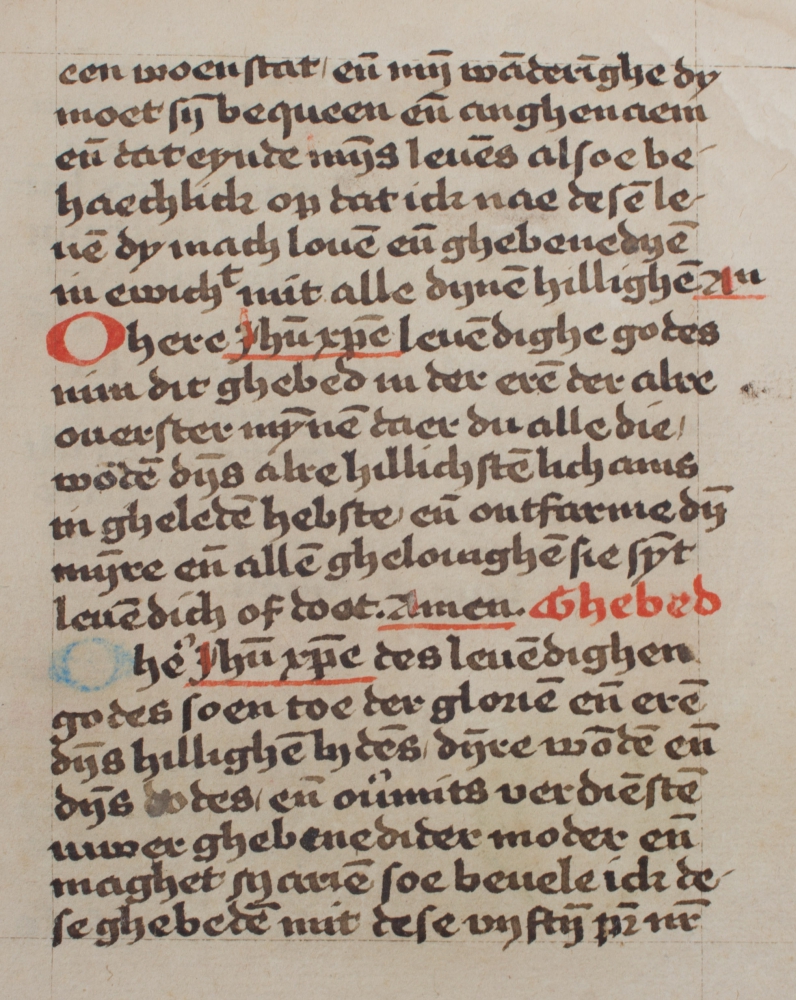 een woenstat / eñ mÿ wāderīghe dy
moet sȳ bequeen eñ anghenaem
eñ dat eynde mȳs leuēs alsoe be-
haechlick op dat ick nae desē le-
uē dy mach louē eñ ghebenedyē
in ewichᵗ mit alle dynē hillighē Am
O here Jhū xpē leuēdighe godes
nim dit ghebed in der erē der alre
ouerster mȳnē daer du alle die /
wōdē dȳs alre hillichstē lichams
in gheledē hebste / eñ ontfarme dȳ
mȳre eñ allē ghelouighē sie sȳt
leuēdich of doot. Amen. Ghebed
O he᷒ Jhū xpē des leuēdighen
godes soen toe der gloriē eñ erē
dȳs hillighē lydēs / dȳre wōdē eñ
dȳs dodes / eñ ou᷒mits verdiēstē
uwer ghebenedider moder eñ
maghet mariē soe beuele ick de-
se ghebedē mit dese vyftȳ pr̄ nr̄